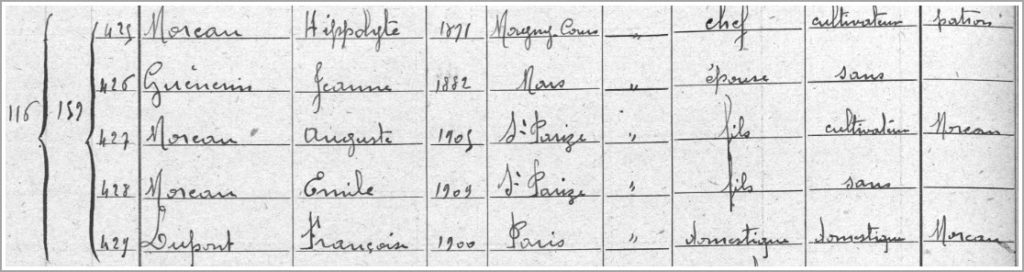 425 Moreau Hippolyte 1871 Magny Cours " chef cultivateur patron
426 Guénerin Jeanne 1882 Mars " épouse sans
116 159 427 Moreau Auguste 1905 St Parize " fils cultivateur Moreau
428 Moreau Emile 1909 St Parize " fils sans
429 Dupont Françoise 1900 Paris " domestique domestique Moreau